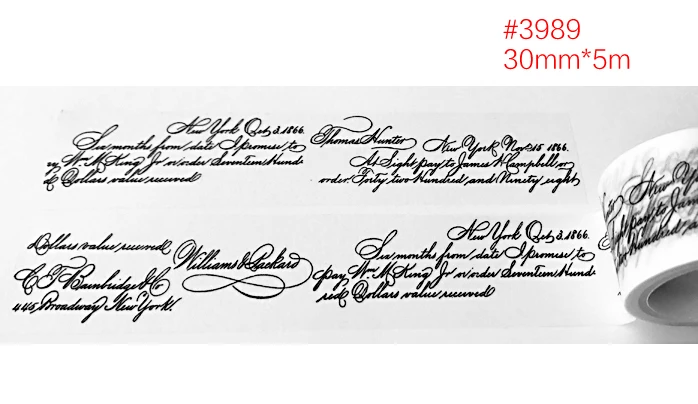 #3989
30mm*5m
New York Oct 3. 1866.
Six months from date I promise to
Wm. M. King Jr. or order Seventeen Hund
Dollars value received
Thomas Hunter
New York Nov 15 1866.
At Sight pay to James H Campbell or
order Forty two Hundred and Ninety eight
Dollars value received
C. F. Bainbridge & Co
445, Broadway New York.
Williams & Packard
New York Oct 3. 1866.
Six months from date I promise to
pay Wm. M. King Jr. or order Seventeen Hund
red Dollars value received
New Yo